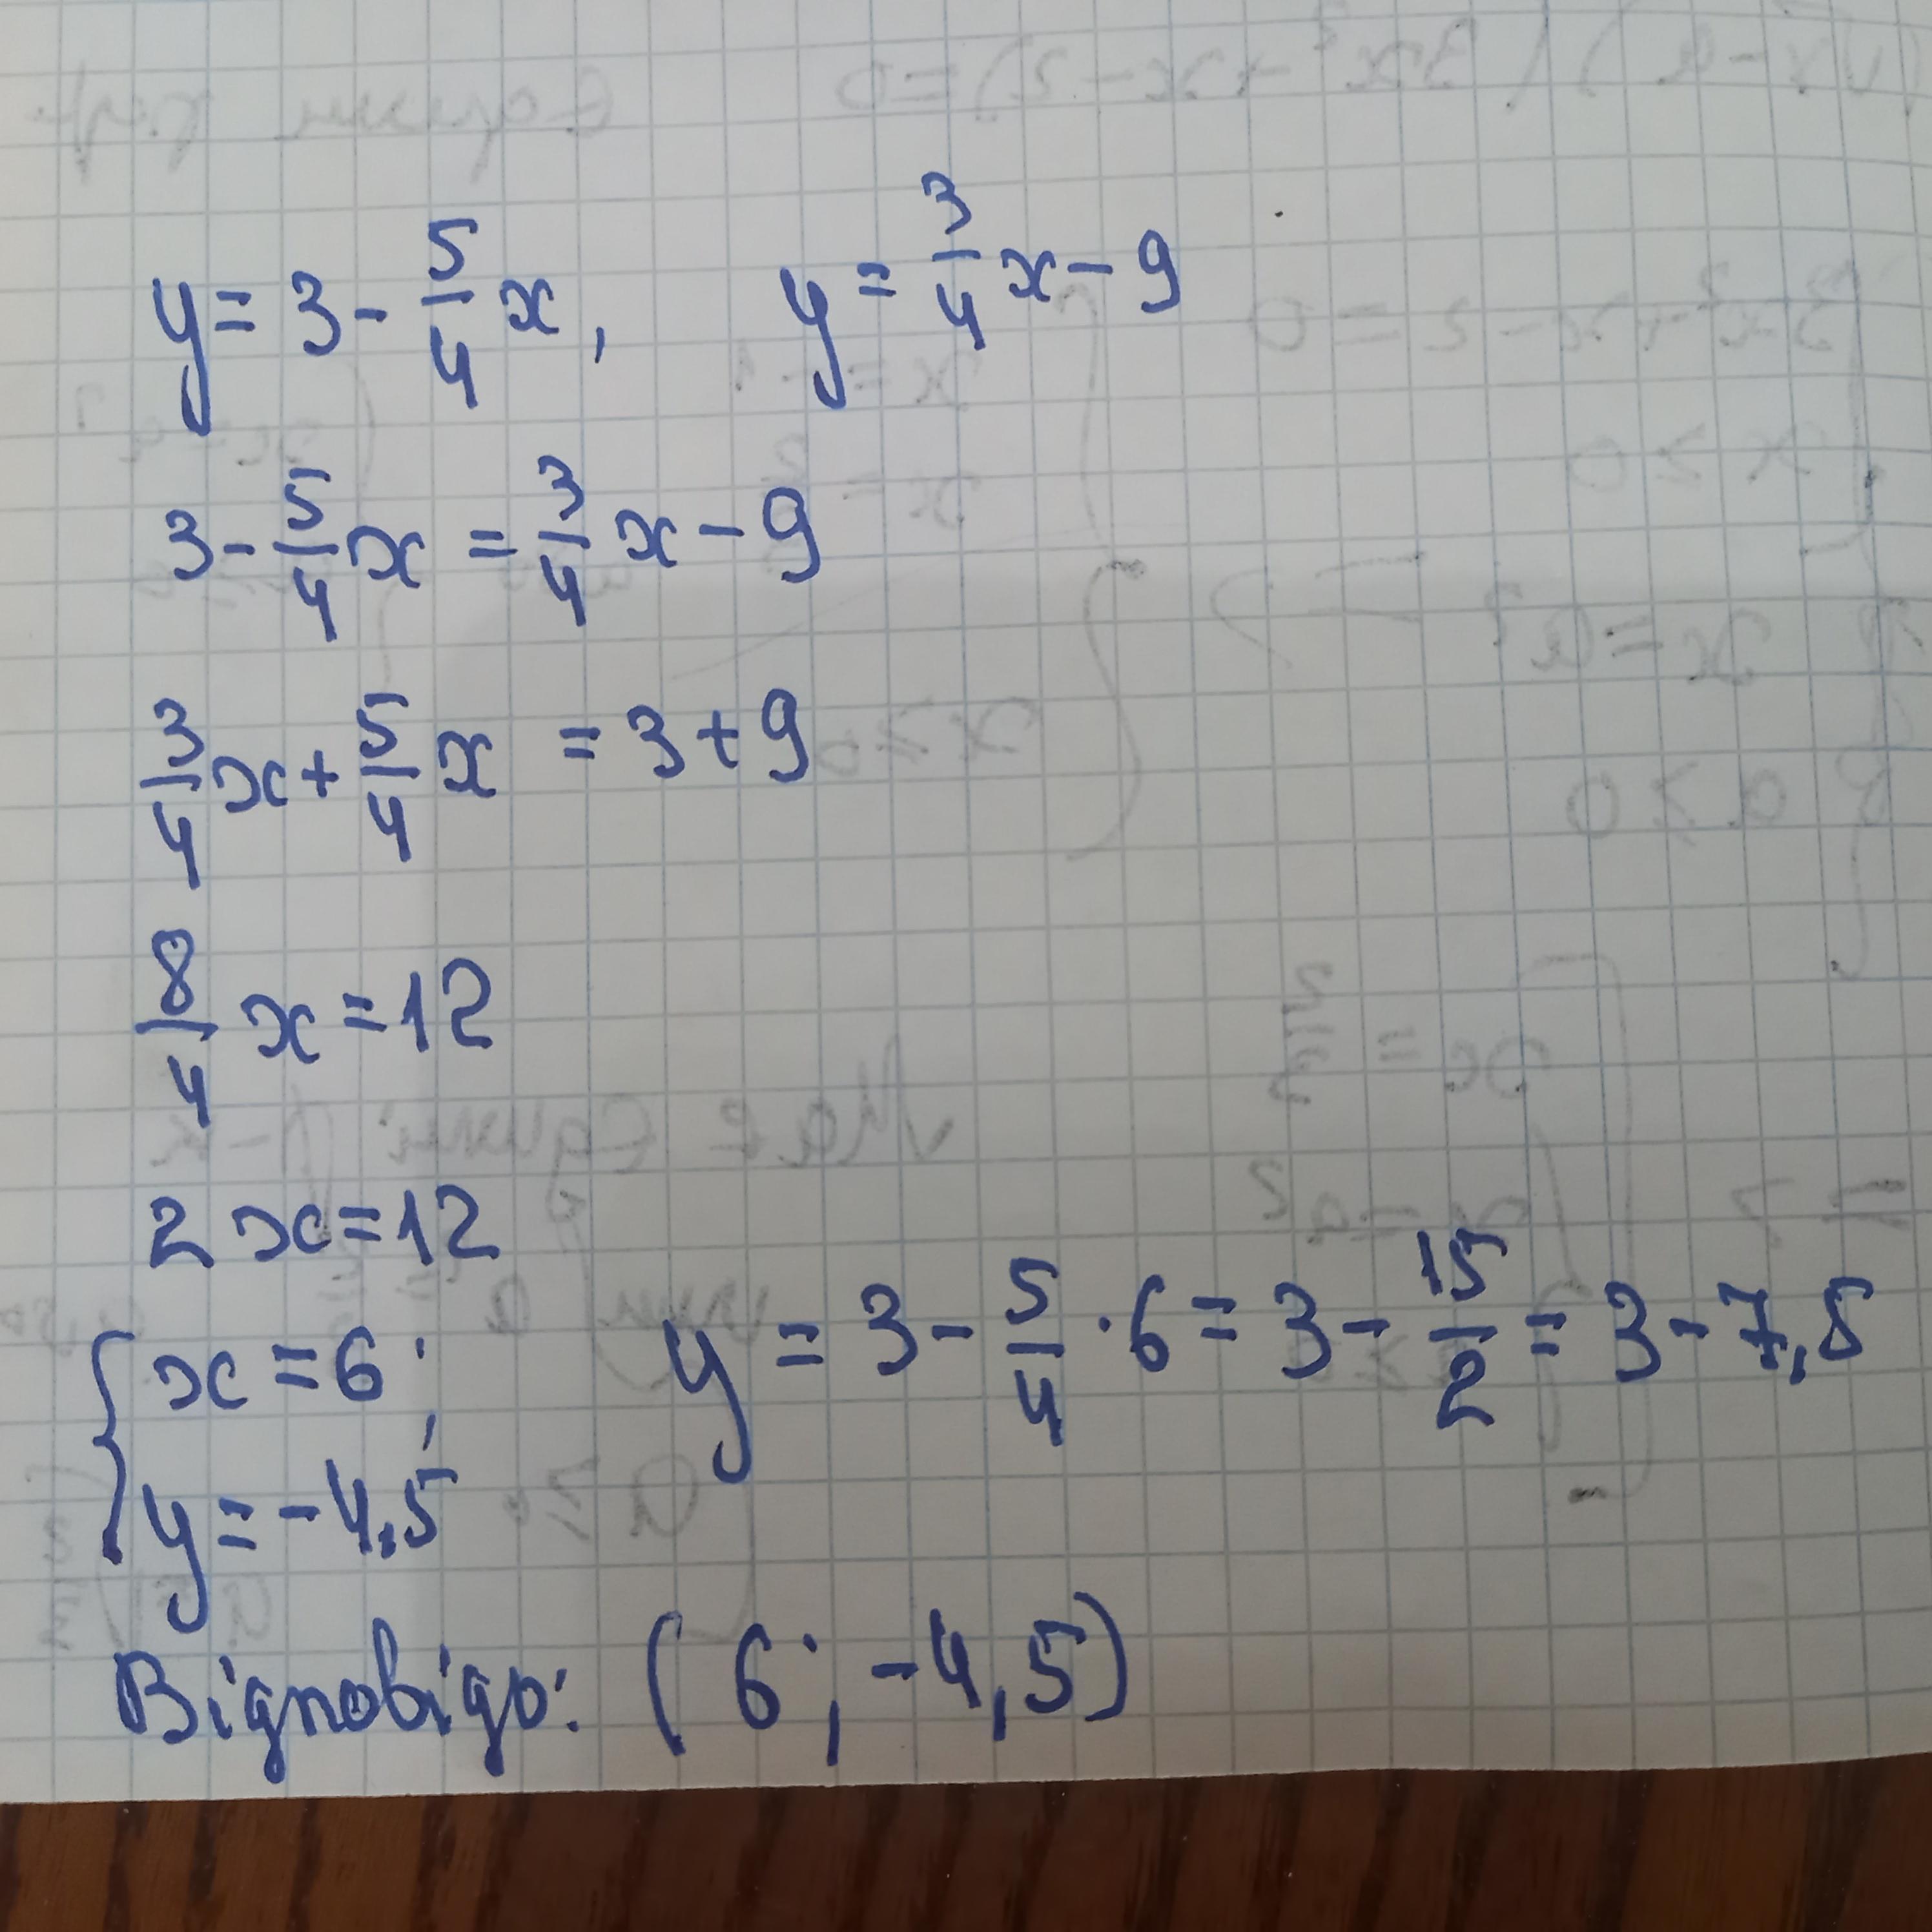 y = 3 - 5/4 x, y = 3/4 x - 9
3 - 5/4 x = 3/4 x - 9
3/4 x + 5/4 x = 3 + 9
8/4 x = 12
2x = 12
{ x = 6; y = 3 - 5/4 · 6 = 3 - 15/2 = 3 - 7,5
y = -4,5
Відповідь: (6; -4,5)